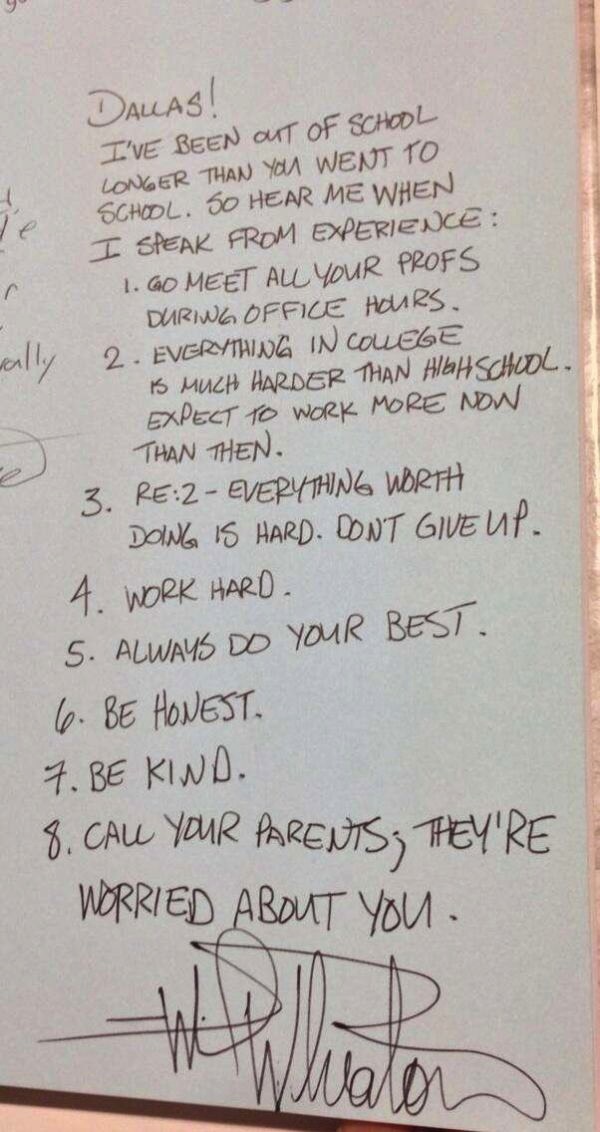 DALLAS!
I'VE BEEN OUT OF SCHOOL
LONGER THAN YOU WENT TO
SCHOOL. SO HEAR ME WHEN
I SPEAK FROM EXPERIENCE:
1. GO MEET ALL YOUR PROFS
DURING OFFICE HOURS.
2. EVERYTHING IN COLLEGE
IS MUCH HARDER THAN HIGHSCHOOL.
EXPECT TO WORK MORE NOW
THAN THEN.
3. RE:2 - EVERYTHING WORTH
DOING IS HARD. DONT GIVE UP.
4. WORK HARD.
5. ALWAYS DO YOUR BEST.
6. BE HONEST.
7. BE KIND.
8. CALL YOUR PARENTS; THEY'RE
WORRIED ABOUT YOU.
Wil Wheaton